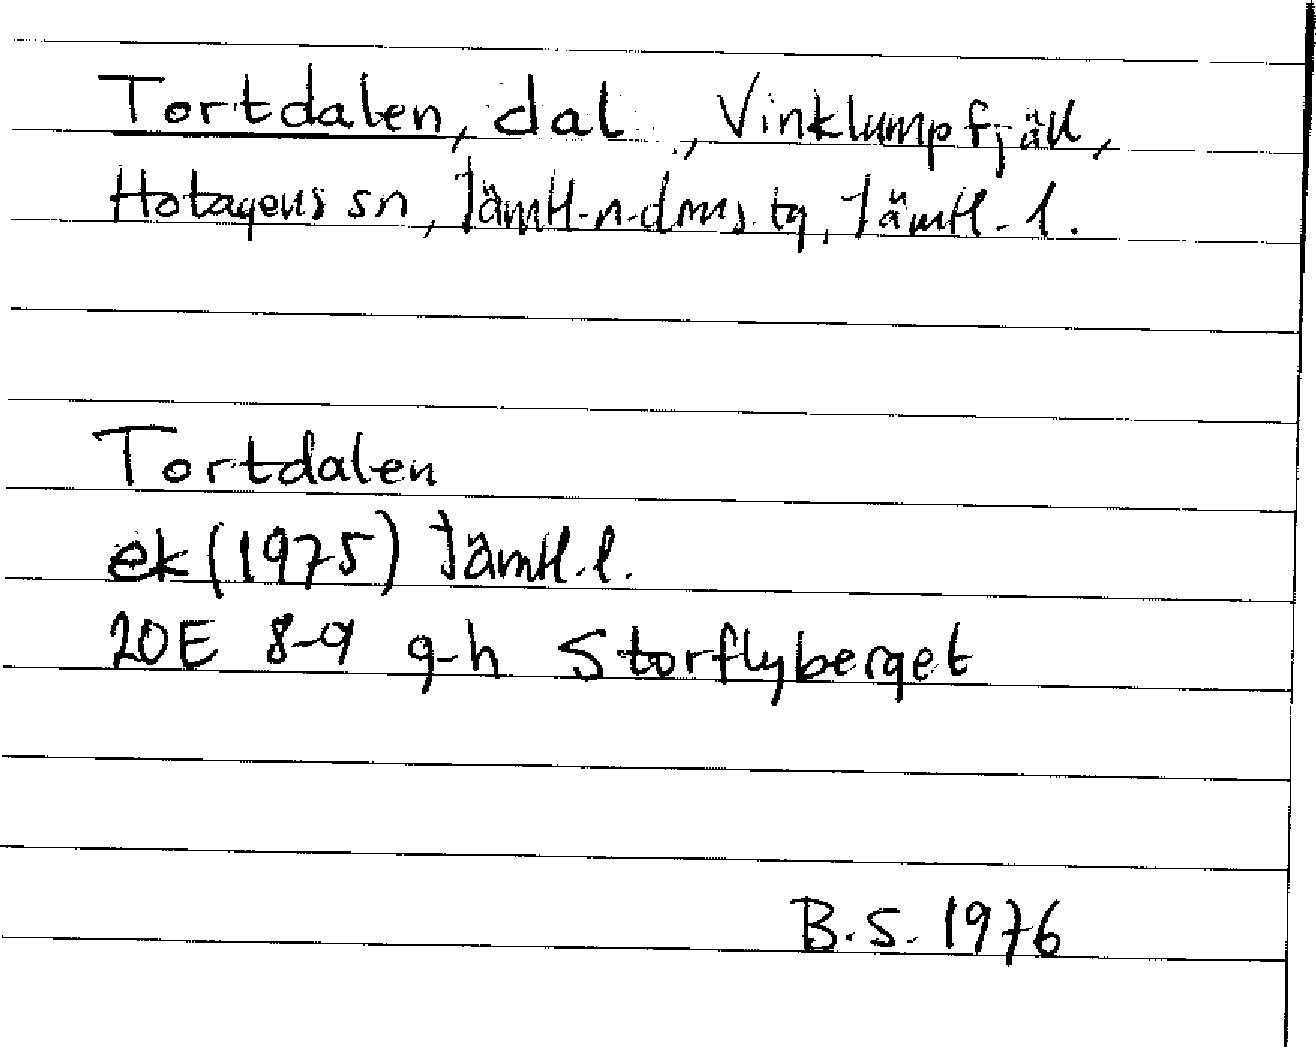 Tortdalen, dal, Vinklumpfjäll,
Hotagens sn, Jämtl. n. dms tg, Jämtl. l.
Tortdalen
ek (1975) Jämtl. l.
20E 8-9 g-h Storflyberget
B.S. 1976